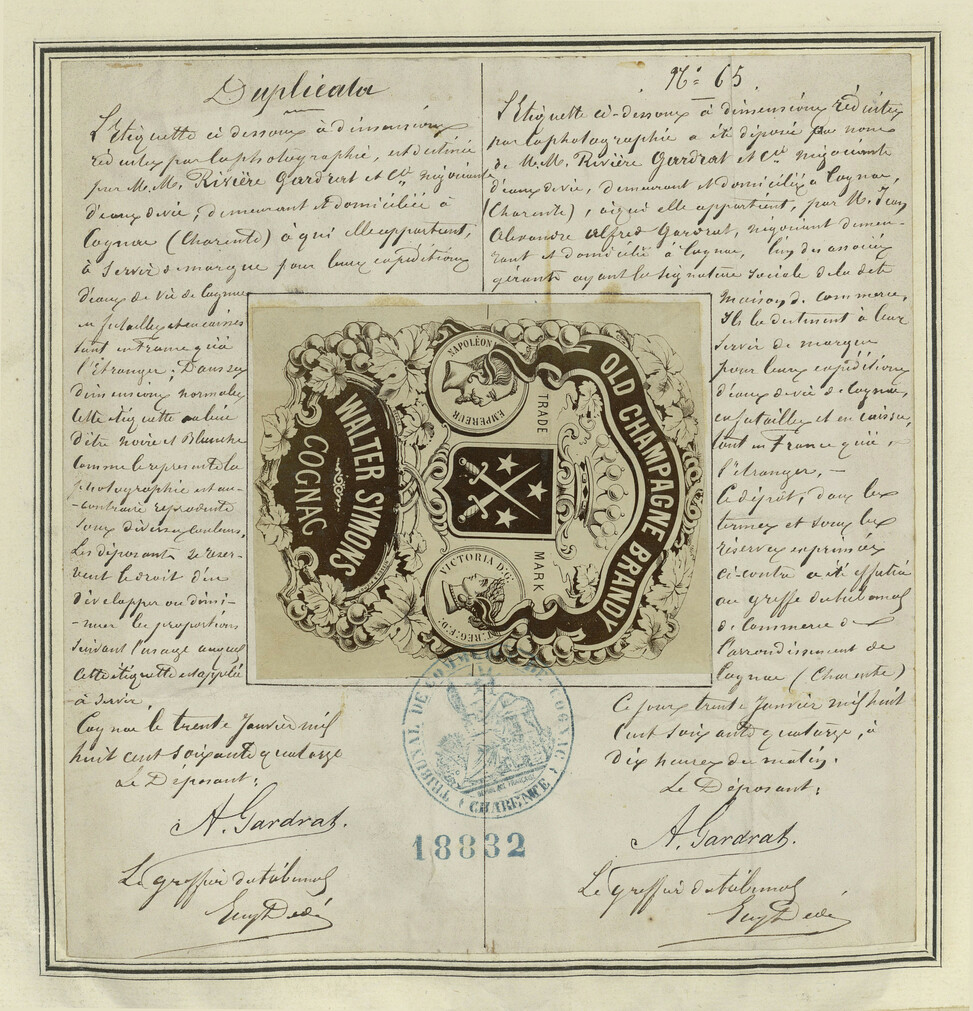 Duplicata
L'Etiquette ci dessous à dimensions
réduites par la photographie, est destinée
par M.M. Rivière Gardrat et Cie négociants
d'eaux de vie, demeurant et domiciliés à
Cognac (Charente) à qui elle appartient,
à servir de marque pour leurs expéditions
d'eaux de vie de Cognac
en futailles et en caisses
tant en France qu'à
l'étranger; Dans ses
dimensions normales
cette étiquette au lieu
d'être noire et Blanche
comme le représente la
photographie est au-
contraire reproduite
sous diverses couleurs.
Les déposants se réser-
vent le droit d'en
développer ou dimi-
-nuer les proportions
suivant l'usage auquel
cette étiquette est appelée
à servir.
Cognac le trente Janvier mil
huit cent soixante quatorze
Le Déposant:
A. Gardrat.
Le greffier du tribunal
No 65
L'Etiquette ci-dessous à dimensions réduites
par la photographie a été déposée au nom
de M.M. Rivière Gardrat et Cie négociants
d'eaux de vie, demeurant et domiciliés à Cognac,
(Charente), à qui elle appartient, par M. Jean
Alexandre Alfred Gardrat, négociant demeu-
rant et domicilié à Cognac, l'un des associés
gérants ayant la signature sociale de la dite
maison de commerce.
Ils la destinent à leur
servir de marque
pour leurs expéditions
d'eaux de vie de Cognac,
en futailles et en caisses,
tant en France qu'à
l'étranger. —
Ce dépôt, dans les
termes et sous les
réserves exprimées
ci-contre a été effectué
au greffe du tribunal
de commerce de
l'arrondissement de
Cognac (Charente)
Ce jour trente Janvier mil huit
cent soixante quatorze, à
dix heures du matin.
Le Déposant:
A. Gardrat.
Le greffier du tribunal
OLD CHAMPAGNE BRANDY
TRADE MARK
NAPOLÉON
EMPEREUR
VICTORIA D: G:
WALTER SYMONS
COGNAC
TRIBUNAL DE COMMERCE DE COGNAC
CHARENCE
18832